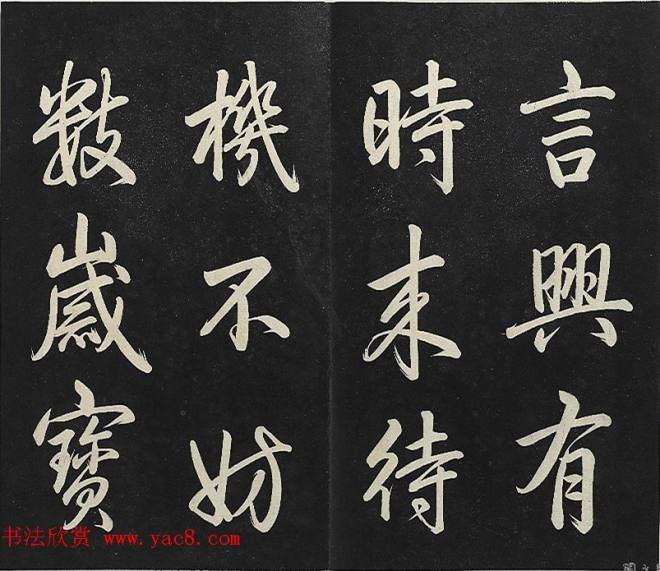 言興有
時來待
機不妨
數歲寶
书法欣赏 www.yac8.com